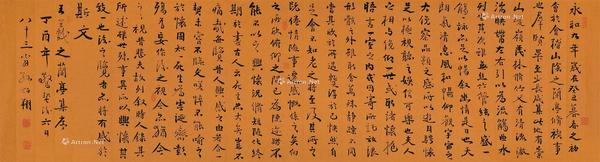 永和九年歲在癸丑暮春之初
會于會稽山陰之蘭亭脩禊事
也群賢畢至少長咸集此地有崇
山峻領茂林脩竹又有清流激
湍暎帶左右引以為流觴曲水
列坐其次雖無絲竹管弦之盛
一觴一詠亦足以暢敘幽情是日也天
朗氣清惠風和暢仰觀宇宙之
大俯察品類之盛所以遊目騁懷
足以極視聽之娛信可樂也夫人
之相與俯仰一世或取諸懷抱
悟言一室之內或因寄所託放浪
形骸之外雖取舍萬殊靜躁不同
當其欣於所遇暫得於己快然自
足不知老之將至及其所之
既倦情隨事遷感慨係之矣向
之所欣俛仰之間已為陳迹猶不
能不以之興懷況脩短隨化終
期於盡古人云死生亦大矣豈不
痛哉每攬昔人興感之由若合一
契未嘗臨文嗟悼不能喻之
於懷固知一死生為虛誕齊彭
殤為妄作後之視今亦猶今
之視昔悲夫故列敘時人錄其
所述雖世殊事異所以興懷其
致一也後之覽者亦將有感於
斯文
王羲之蘭亭集序
丁酉年 六日
八十三